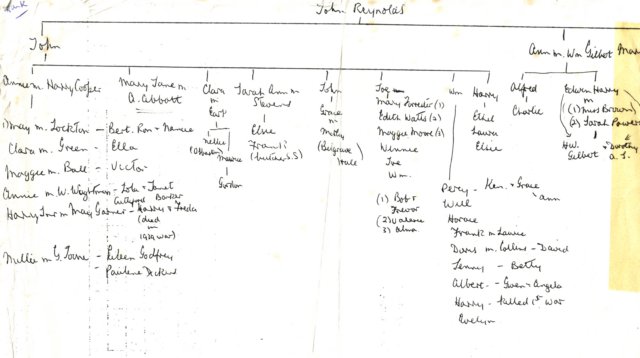 John Reynolds
John
Ann m. Wm Gilbert
Annie m. Harry Cooper
Mary Jane m.
A. Abbott
Clara
m
Sarah Ann m
Stevens
John
Joe
Wm
Harry
Alfred
Edwin Harry
m
(1) Miss Brown
(2) Sarah Powers
Elsie
Frank
(butcher S.S)
Grace
m
(Belgrave
Mary (1)
Edith Watts (2)
Maggie Moore (3)
Winnie
Joe
Wm.
Ethel
Laura
Elsie
Charlie
H.W.
Gilbert
Dorothy
a. J.
Nellie
Maurice
Gordon
May m. Lockton - Bert. Ron - Nancie
Clara m. Green - Ella
Maggie m. Ball - Victor
Annie m. W. - Lola & Janet
Barker
Harry Jnr m May Garner - Harry & Freda
(died
in
1939 war)
Millie m G. Toone - Eileen Godfrey
- Pauline Dickins
(1) Bob &
Trevor
(2) Valerie
3) Alma
Percy - Ken. & Grace
Ann
Will
Horace
Frank m Laurie
Doris m. Collins - David
Jenny - Betty
Albert - Gwen & Angela
Harry - killed 1st War
Evelyn